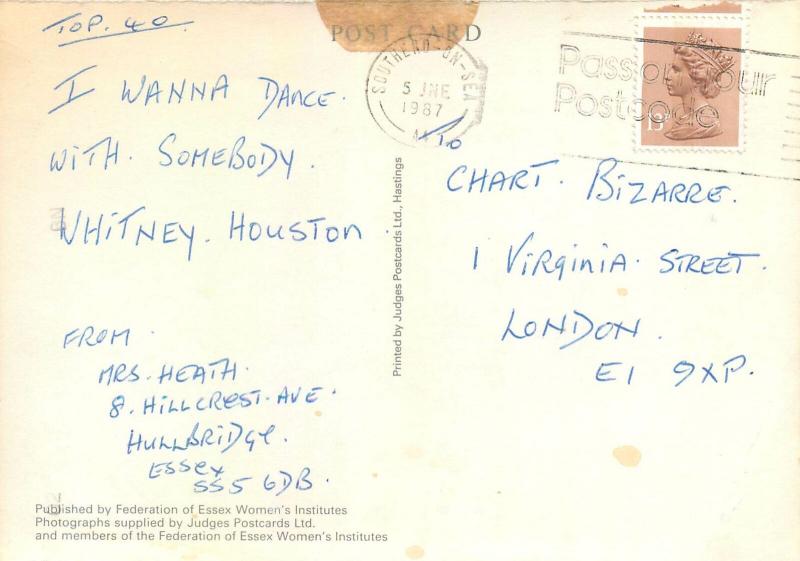 TOP. 40
POST CARD
I WANNA DANCE.
WITH. SOMEBODY.
WHITNEY. HOUSTON.
FROM
MRS. HEATH.
8. HILLCREST. AVE.
HULLBRIDGE.
ESSEX
SS5 6DB.
Published by Federation of Essex Women's Institutes
Photographs supplied by Judges Postcards Ltd.
and members of the Federation of Essex Women's Institutes
Printed by Judges Postcards Ltd., Hastings
SOUTHEND-ON-SEA
5 JNE
1987
Pass on your
Postcode
13
To
CHART. BIZARRE.
1 VIRGINIA. STREET.
LONDON.
E1 9XP.